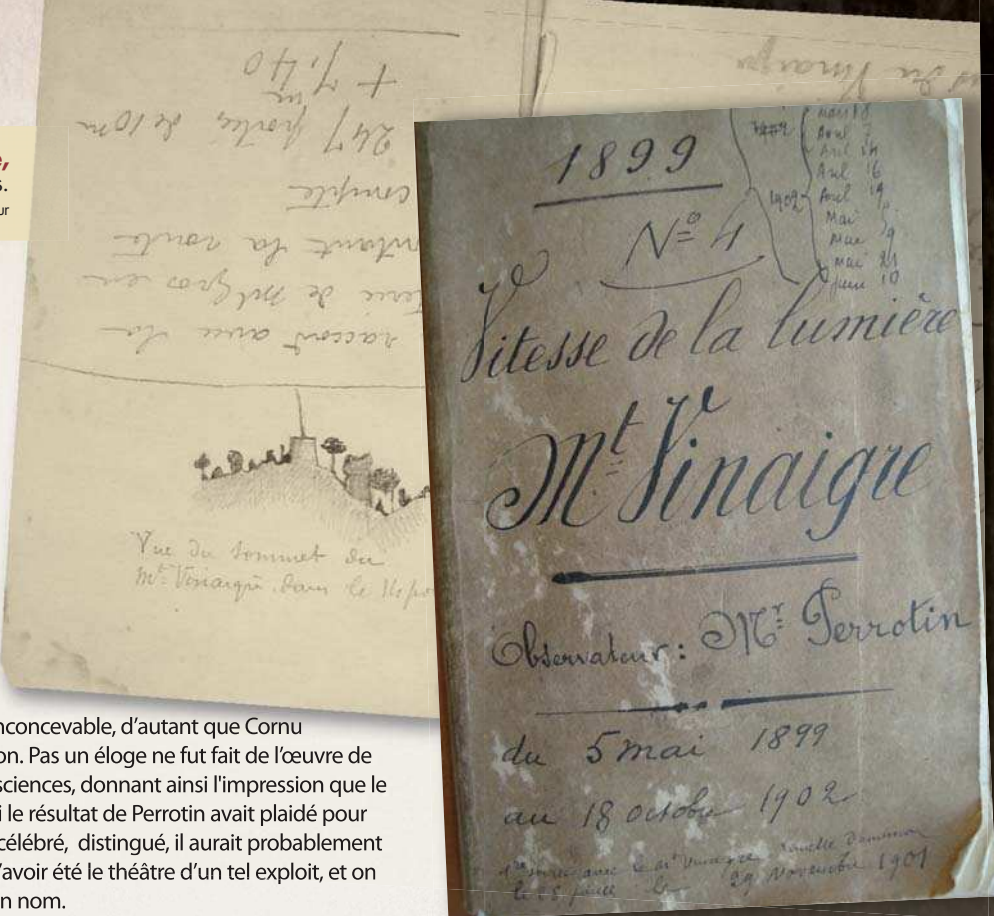 + 7,40
m
247 portées de 10m
compté
la route
de Malgros en
raccord avec la
Vue du sommet du
Mt. Vinaigre dans le
1899
No 4
Mars 18
Avril 7
Avril 14
Avril 16
1902 Avril 19
Mai
Mai 9
Mai 21
Juin 10
Vitesse de la lumière
Mt Vinaigre
Observateur : Mr Perrotin
du 5 mai 1899
au 18 octobre 1902
avec le Mt Vinaigre
le 29 Novembre 1901
e,
s.
ur
nconcevable, d’autant que Cornu
on. Pas un éloge ne fut fait de l’œuvre de
sciences, donnant ainsi l'impression que le
i le résultat de Perrotin avait plaidé pour
célébré, distingué, il aurait probablement
’avoir été le théâtre d’un tel exploit, et on
n nom.